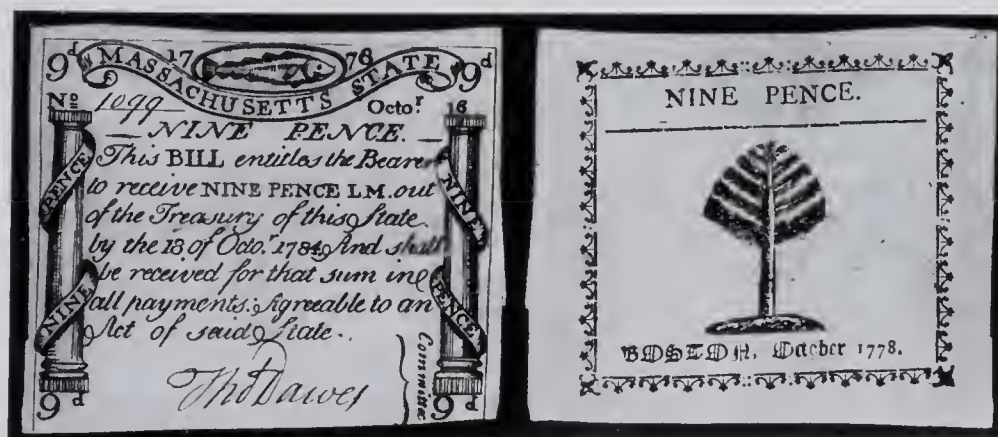 9d 17 78 9d
MASSACHUSETTS STATE
No 1099 Octo.r 16
NINE PENCE.
This BILL entitles the Bearer
to receive NINE PENCE LM. out
of the Treasury of this State
by the 18 of Octo.r 1784 And shall
be received for that sum in
all payments. Agreeable to an
Act of said State.
PENCE
NINE
NINE
PENCE
Tho Dawes
Committee
9d 9d
NINE PENCE.
BOSTON, October 1778.